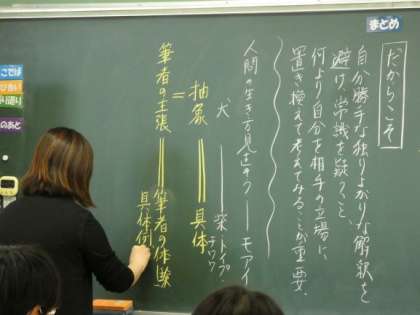 まとめ
だからこそ
自分勝手な独りよがりな解釈を
避け、常識を疑うこと、
何より自分を相手の立場に
置き換えて考えてみることが重要。
人間の生き方見きわう ― モアイ
犬 ― 柴・トイプ・チワワ
抽象 = 具体
＝
筆者の主張 = 筆者の体験
具体例
のあと